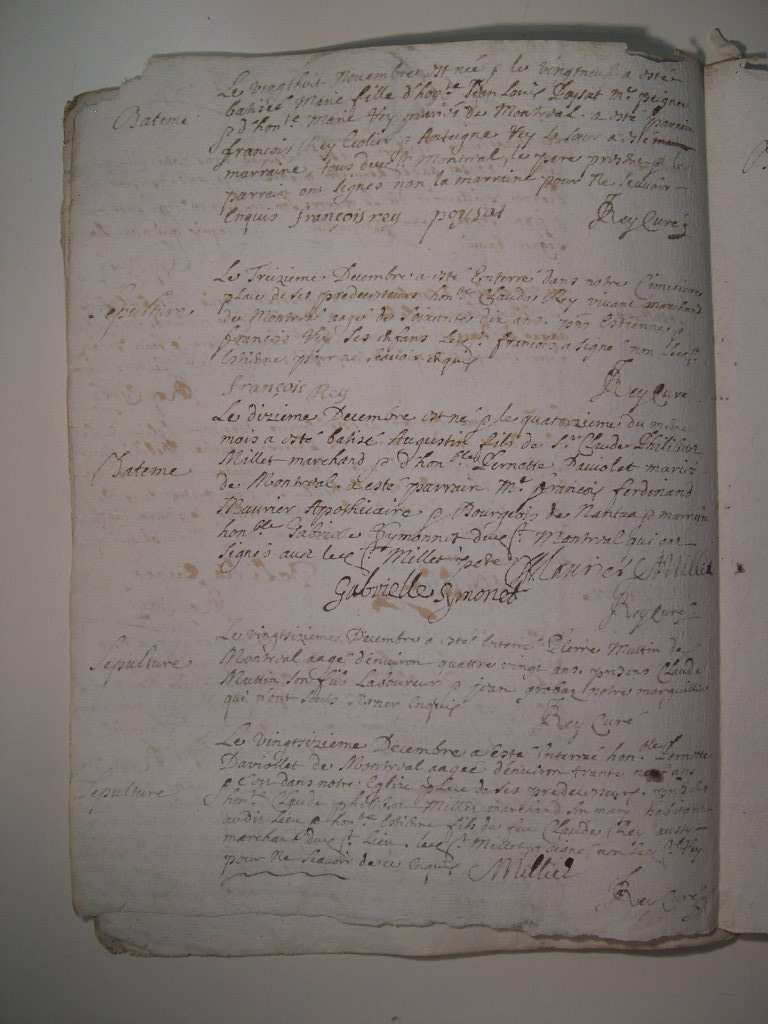 Le vingthuit Novembre est née p le vingtneuf a esté
Bateme
batisée Marie fille d'hon.ble Jean Louis Paysat m.e peigneur
p d'hon.te Marie Rey mariés de Montreal a esté parrain
françois Rey Ecolier p Antoigne Rey
marraine tous deux de Montreal le pere p le
parrain ont signés non la marraine pour ne sçavoir
Enquis françois rey paysat Rey Curé
Le Treizieme Decembre a esté Enterré dans notre Cimetiere
Sepulture
place de ses predecesseurs hon.ble Claude Rey vivant marchand
de Montreal aagé de soixante dix ans Estienne p
françois Rey ses Enfans françois a signé non
Estiene pour ne sçavoir enquis
françois Rey Rey Curé
Le dizieme Decembre est né p le quatorzieme du même
mois a esté batisé Augustin fils de S.r Claude Philibert
Bateme
Millet marchand p d'hon.ble Pernette Daviolet mariés
de Montreal a esté parrain M.e francois ferdinand
Maurier Apothicaire p Bourgeois de Nantua p marraine
hon.ble Gabriele Symonnet Montreal qui ont
signés avec le S.r Millet pere Maurier Millet
Gabrielle Symonet
Rey Curé
Le vingtsixieme Decembre a esté Enterré Pierre Muttin de
Sepulture
Montreal aagé d'environ quattre vingt ans Claude
Muttin son fils Laboureur p jean notre marguillier
qui n'ont sceus signer Enquis
Rey Curé
Le vingtsixieme Decembre a esté Enterré hon.ble Pernette
Daviollet de Montreal aagée d'environ trante
Sepulture
dans notre Eglise place de ses predecesseurs
hon.ble Claude philibert Millet marchand son mary habitant
au dit Lieu p hon.ble Estiene fils de feu Claude Rey aussy
marchand dud.t Lieu
pour ne sçavoir de ce Enquis Millet
Rey Curé